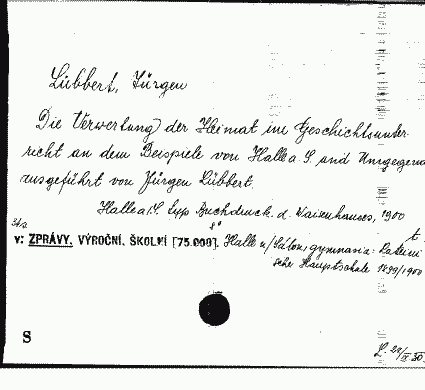 Lübbert, Jürgen
Die Verwertung der Heimat im Geschichtsunter-
richt an dem Beispiele von Halle a S. und Umgegend
ausgeführt von Jürgen Lübbert.
Halle a/S. typ. Buchdruck. d. Waisenhauses, 1900
8°
v: ZPRÁVY, VÝROČNÍ, ŠKOLNÍ [75.000]. Halle n/Sálou, gymnasia: Lateini
sche Hauptschule 1899/1900
S